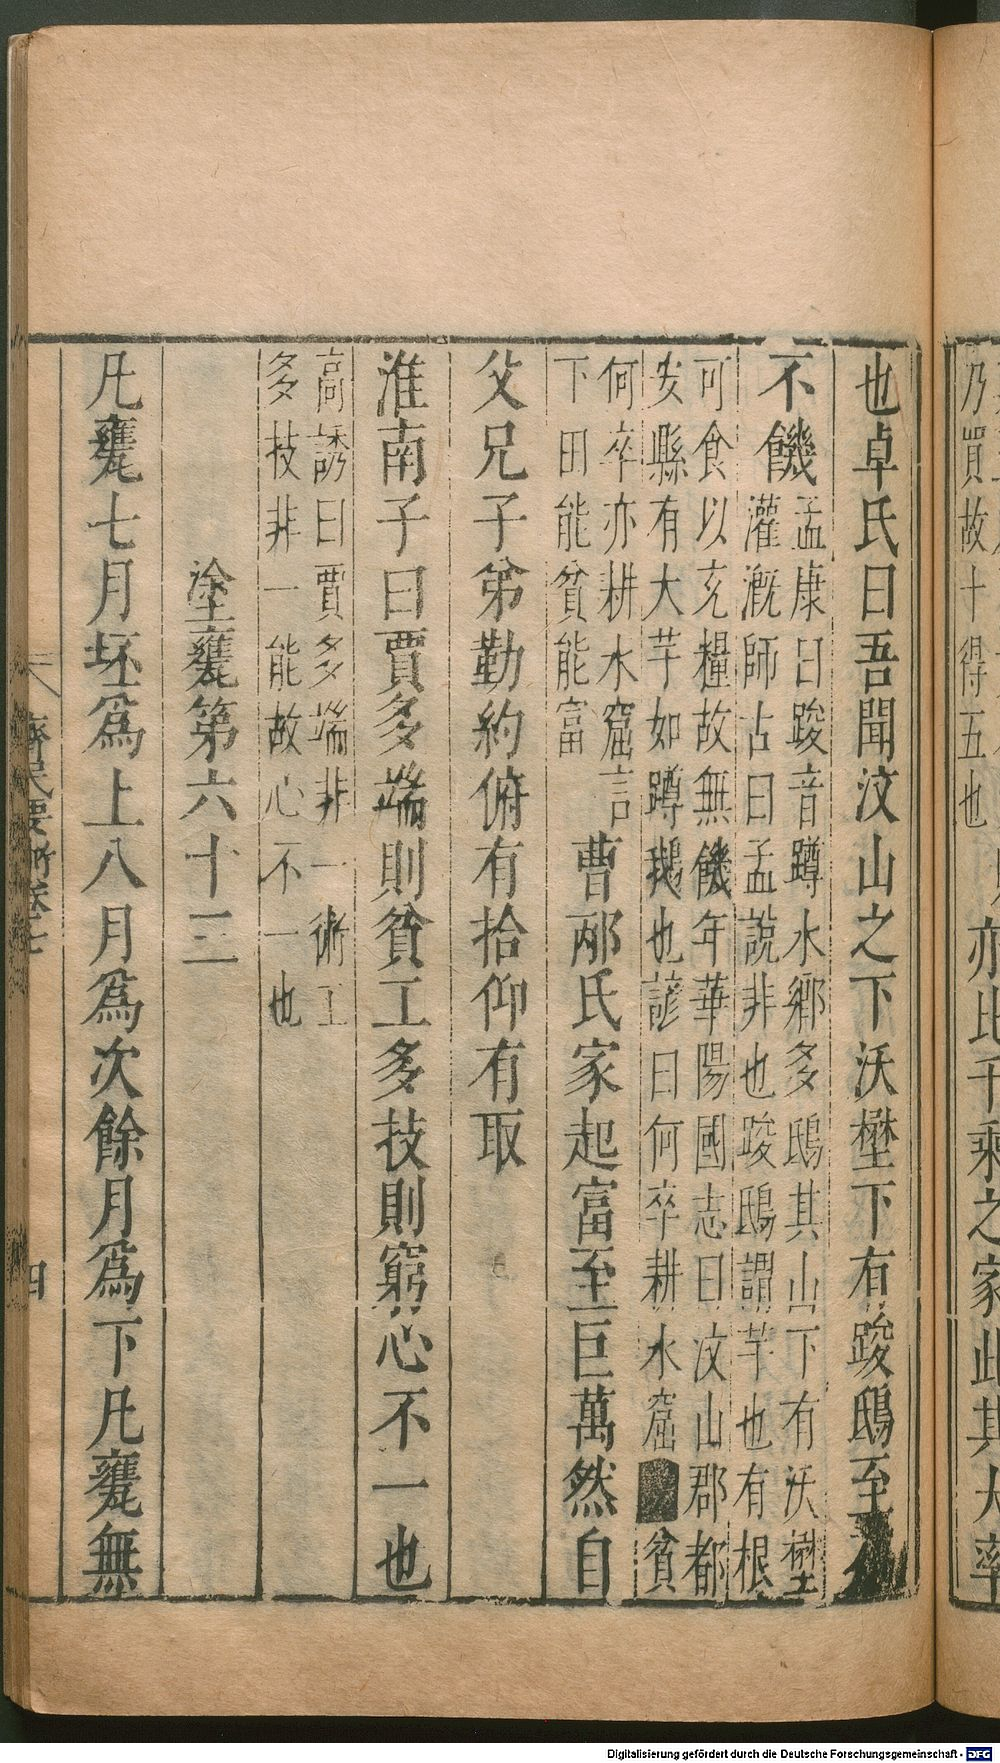 乃買故十得五也
亦比千乘之家此其大率
也卓氏曰吾聞汶山之下沃壄下有踆鴟至
不饑
孟康曰踆音蹲水鄉多鴟其山下有沃壄
灌溉師古曰孟說非也踆鴟謂芋也有根
可食以充糧故無饑年華陽國志曰汶山郡都
安縣有大芋如蹲鵝也諺曰何卒耕水窟貧
何卒亦耕水窟言
下田能貧能富
曹邴氏家起富至巨萬然自
父兄子弟勤約俯有拾仰有取
淮南子曰賈多端則貧工多技則窮心不一也
高誘曰賈多端非一術工
多技非一能故心不一也
塗甕第六十三
凡甕七月坯爲上八月爲次餘月爲下凡甕無
齊民要術卷七
四
Digitalisierung gefördert durch die Deutsche Forschungsgemeinschaft - DFG